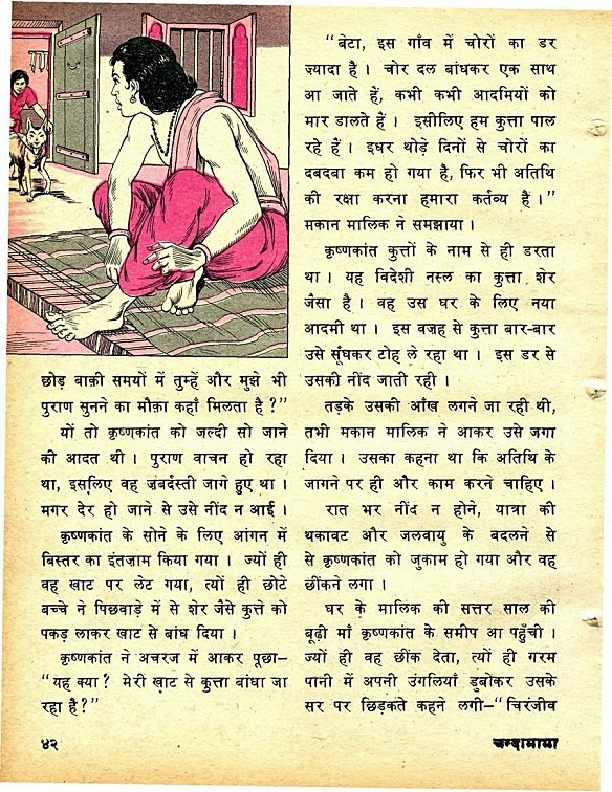 छोड़ बाक़ी समयों में तुम्हें और मुझे भी
पुराण सुनने का मौक़ा कहाँ मिलता है ?”
यों तो कृष्णकांत को जल्दी सो जाने
की आदत थी । पुराण वाचन हो रहा
था, इसलिए वह ज़बर्दस्ती जागे हुए था ।
मगर देर हो जाने से उसे नींद न आई ।
कृष्णकांत के सोने के लिए आंगन में
बिस्तर का इंतज़ाम किया गया । ज्यों ही
वह खाट पर लेट गया, त्यों ही छोटे
बच्चे ने पिछवाड़े में से शेर जैसे कुत्ते को
पकड़ लाकर खाट से बांध दिया ।
कृष्णकांत ने अचरज में आकर पूछा—
“यह क्या ? मेरी खाट से कुत्ता बांधा जा
रहा है ?”
“बेटा, इस गाँव में चोरों का डर
ज्यादा है । चोर दल बांधकर एक साथ
आ जाते हैं, कभी कभी आदमियों को
मार डालते हैं । इसीलिए हम कुत्ता पाल
रहे हैं । इधर थोड़े दिनों से चोरों का
दबदबा कम हो गया है, फिर भी अतिथि
की रक्षा करना हमारा कर्तव्य है ।”
मकान मालिक ने समझाया ।
कृष्णकांत कुत्तों के नाम से ही डरता
था । यह विदेशी नस्ल का कुत्ता शेर
जैसा है । वह उस घर के लिए नया
आदमी था । इस वजह से कुत्ता बार-बार
उसे सूँघकर टोह ले रहा था । इस डर से
उसकी नींद जाती रही ।
तड़के उसकी आँख लगने जा रही थी,
तभी मकान मालिक ने आकर उसे जगा
दिया । उसका कहना था कि अतिथि के
जागने पर ही और काम करने चाहिए ।
रात भर नींद न होने, यात्रा की
थकावट और जलवायु के बदलने से
से कृष्णकांत को जुकाम हो गया और वह
छींकने लगा ।
घर के मालिक की सत्तर साल की
बूढ़ी माँ कृष्णकांत के समीप आ पहुँची ।
ज्यों ही वह छींक देता, त्यों ही गरम
पानी में अपनी उंगलियाँ डुबोकर उसके
सर पर छिड़कते कहने लगी—“चिरंजीव
४२
चन्दामामा